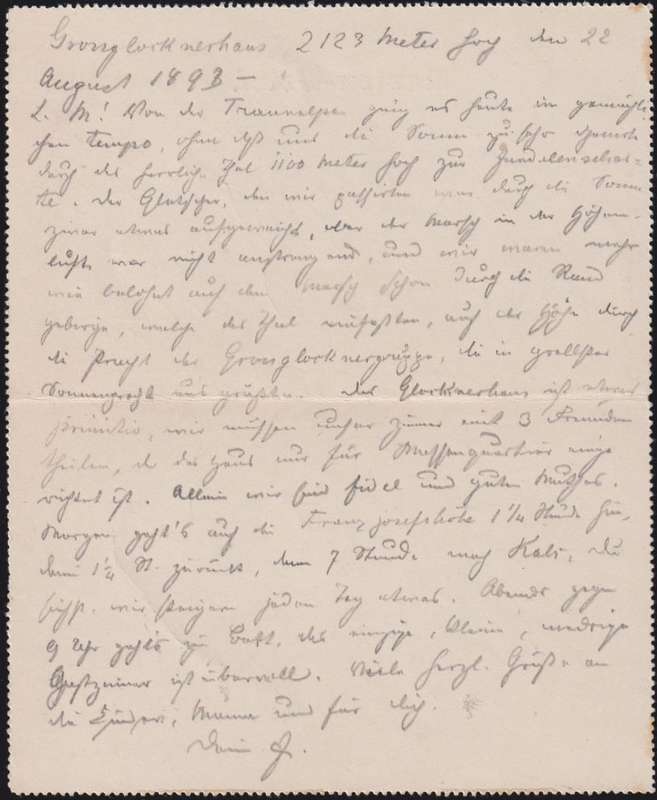 Grossglocknerhaus 2123 Meter hoch den 22
August 1893 –
L. M! Von der Traueralpen ging es heute im gemüthli-
chen Tempo, ohne daß uns die Sonne zu sehr
durch das herrliche Thal 1100 Meter hoch zur
Der Gletscher, den wir passirten war durch die Sonne
zwar etwas aufgeweicht, aber der Marsch in der Höhen-
luft war nicht anstrengend, und wir waren mehr
wie belohnt auf dem Marsch schon durch die Rand
gebirge, welche das Thal einfaßten, auf der Höhe durch
die Pracht der Grossglocknergruppe, die in grellster
Sonnenpracht uns grüßte. Das Glocknerhaus ist etwas
primitiv, wir müssen unser Zimmer mit 3 Fremden
theilen, da das Haus nur für Massenquartier einge
richtet ist. Allein wir sind fidel und guten Muthes.
Morgen geht's auf die Franz Josefshöhe 1 1/4 Stunde hin,
dann 1 1/4 St. zurück, dann 7 Stunde nach Kals, Du
siehst wir steigern jeden Tag etwas. Abends gegen
9 Uhr geht's zu Bett, das einzige, kleine, niedrige
Gastzimmer ist übervoll. Viele herzl. Grüße an
die Kinder, Mama und für Dich.
Dein